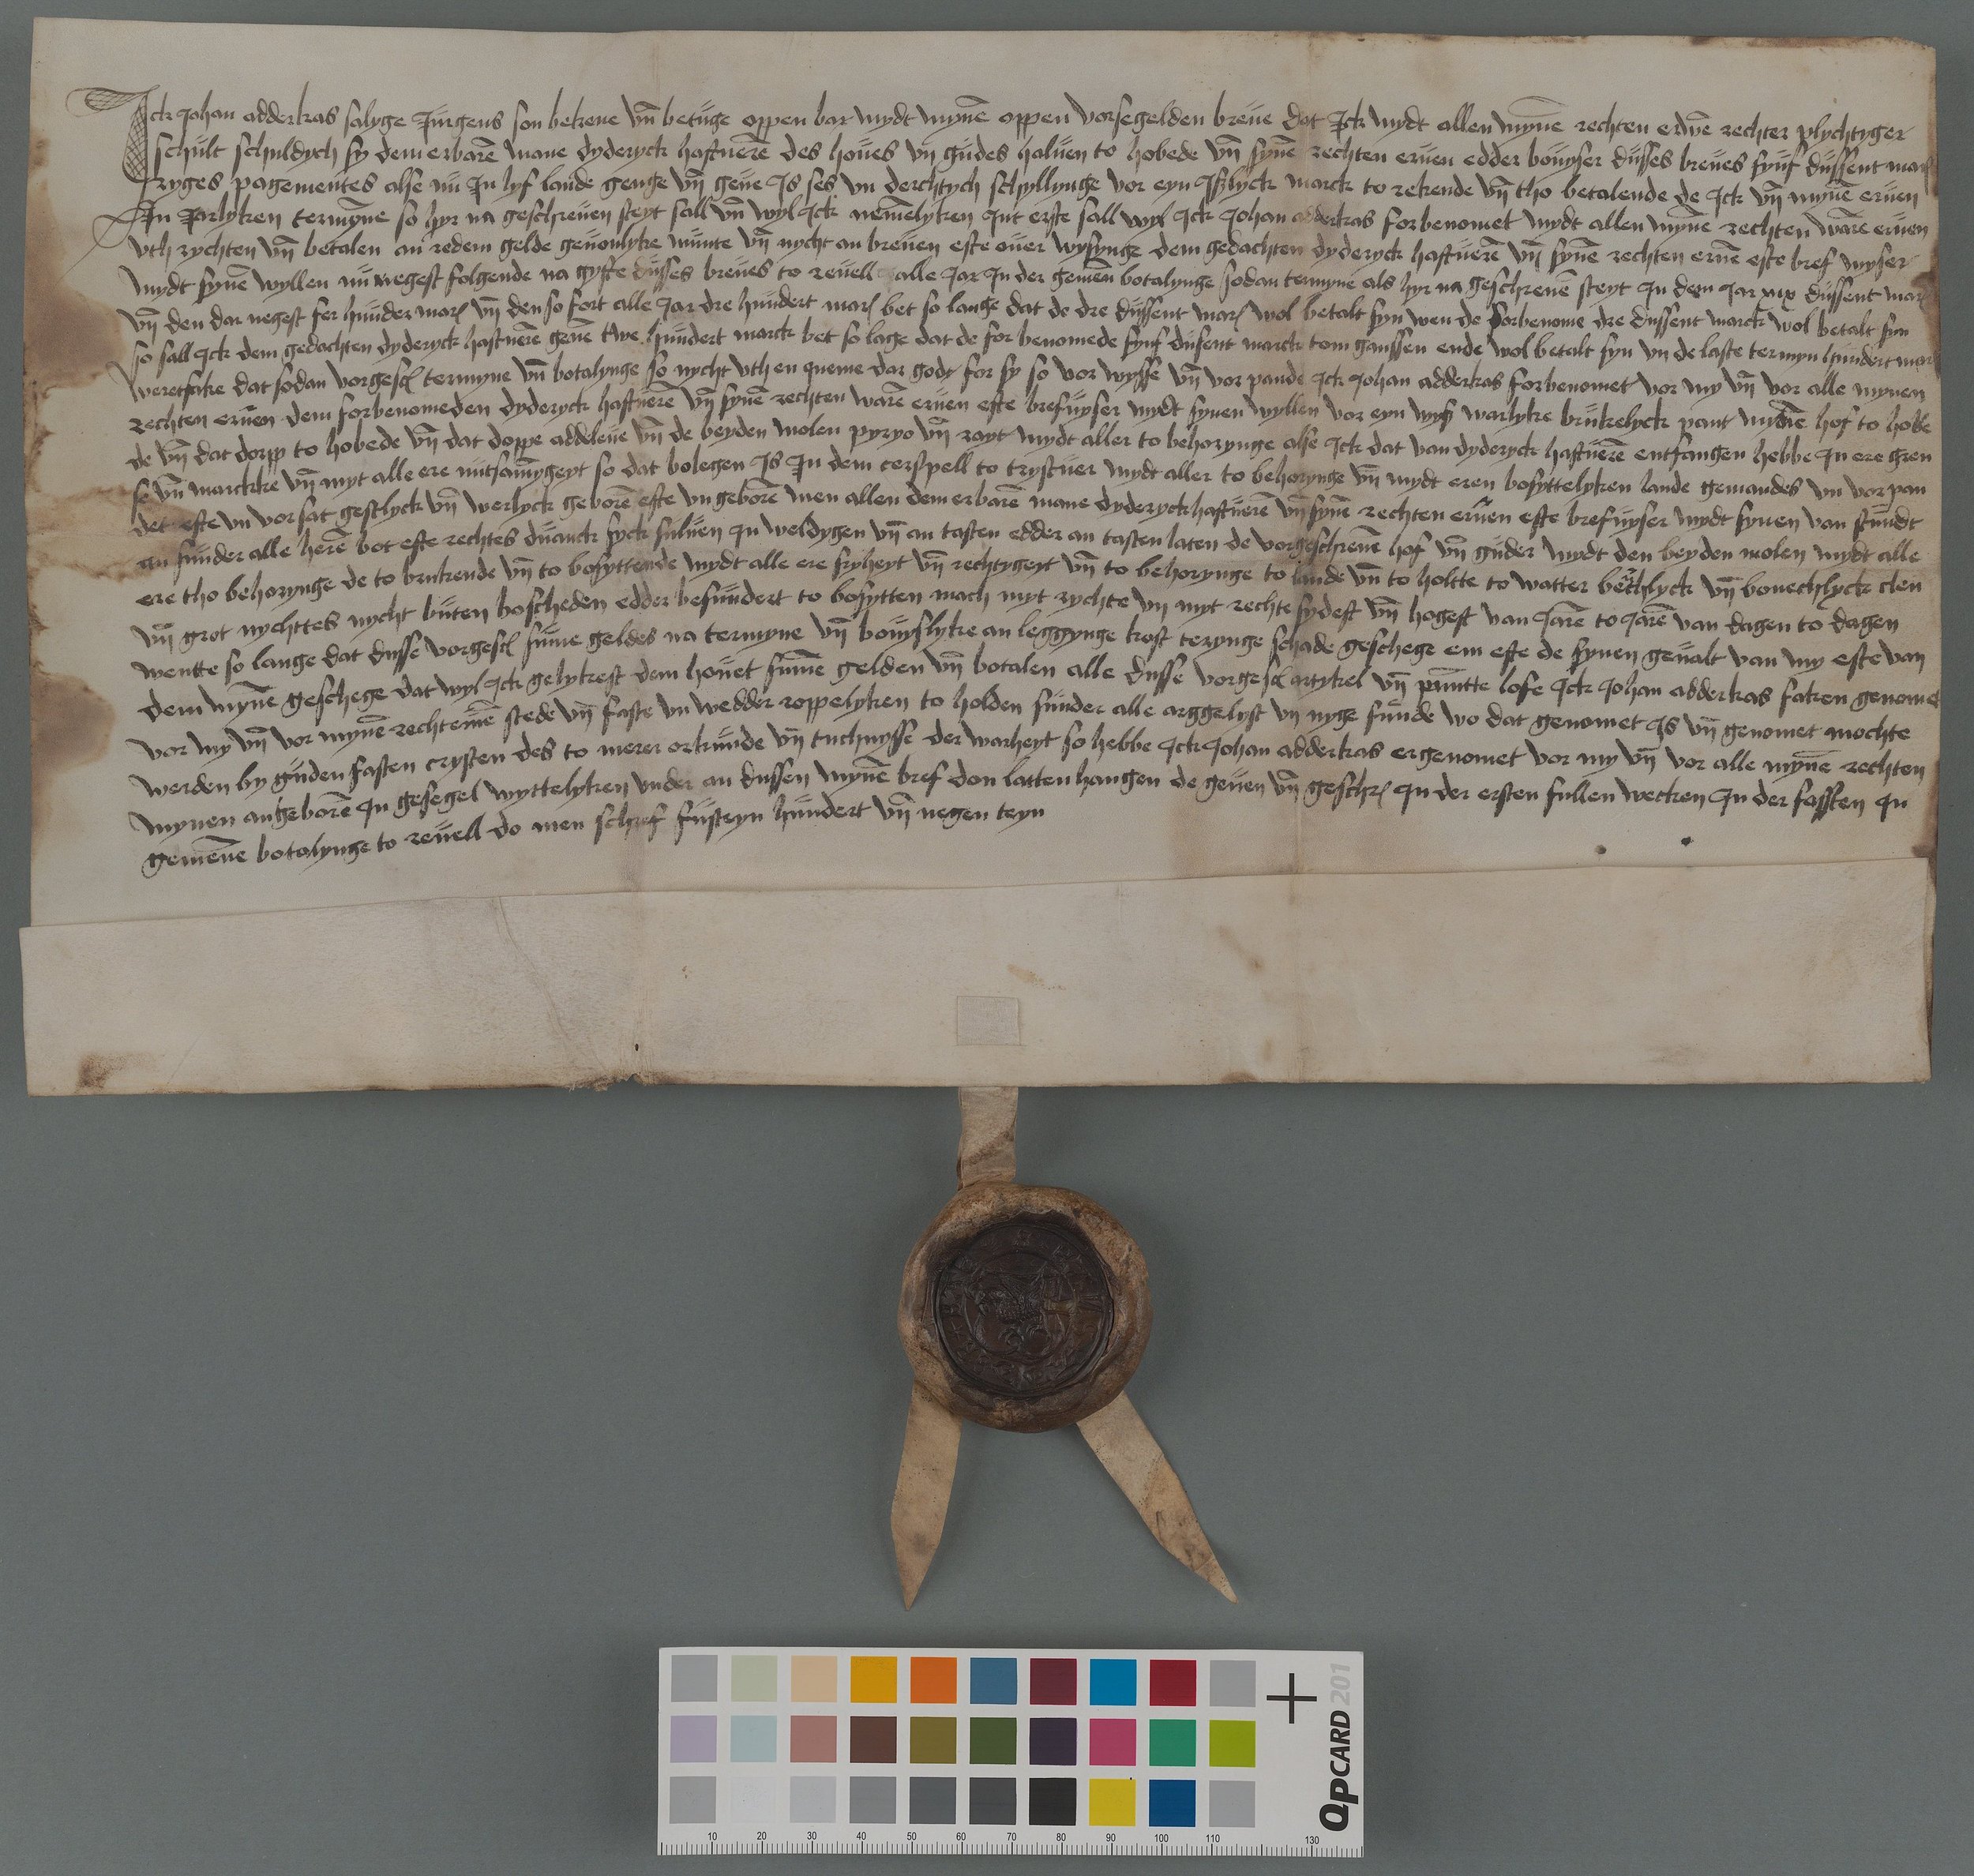 Ick Johan adderkas salyge Jurgens son bekene vn̄ betuge oppen bar mydt mynē oppen vorsegelden breue dat Ick mydt allen mynē rechten erwē rechter plychtyger
schult schuldych sy dem erbarē mane dyderyck hastuerē des houes vn̄ gudes haluen to hobede vn̄ synē rechten eruen edder bouyser dusses breues fyuf dussent mar
ryges pagementes alse nu Jn lyf lande genge vn̄ geue Js ses vn dertych schyllynge vor eyn Jslyck marck to rekende vn̄ tho betalende de Jck vn̄ mynē eruen
An Jarlyken termyne so hyr na geschreuen steyt sall vn̄ wyl Jck nemelyken Jnt erste sall wyl Jck Johan adderkas forbenomet mydt allen mynē rechten warē eruen
vth rychten vn̄ betalen an redem gelde geuonlyke munte vn̄ nycht an breuen efte ouer wysynge dem gedachten dyderyck hastuerē vn̄ synē rechten eruē efte bref wyser
mydt synē wyllen nu negest folgende na gyfte dusses breues to reuell alle Jar Jn der gemeen botalynge sodan termyne als hyr na geschreuē steyt Jn dem Jar xix dussent mar
vn̄ den dar negest fer hunder mar vn̄ den so fort alle Jar dre hundert mar bet so lange dat de dre dussent mar wol betalt syn wen de forbenome dre dussent marck wol betalt syn
so sall Jck dem gedachten dyderyck hastuerē geuē twe hundert marck bet so lage dat de for benomede fyuf dusent marck tom ganssen ende wol betalt syn vn de laste termyn hundert mar
weretsake dat sodan vorgesc termyne vn̄ botalynge so nycht vth en queme dar godt for sy so vor wysse vn̄ vor pande Jck Johan adderkas forbenomet vor my vn̄ vor alle mynen
rechten eruen dem forbenomeden dyderyck hastuerē vn̄ synē rechten warē eruen efte brefuyser mydt synen wyllen vor eyn wyss warlyke brukelyck pant mydtē hof to hobe
de vn̄ dat dorpp to hobede vn̄ dat doppe addeleue vn̄ de beyden molen pyryo vn̄ rayt mydt aller to behorynge alse Jck dat van dyderyck hastuerē entfangen hebbe Jn ere gren
se vn̄ marckke vn̄ myt alle ere nutsamygeyt so dat bolegen Js Jn dem cerspell to trystuer mydt aller to behorynge vn̄ mydt eren bosyttelyken lande gemandes vn vor pan
det efte vn vorsat gestlyck vn̄ werlyck geborē efte vn geborē men allen dem erbarē mane dyderyck hastuerē vn̄ synē rechten eruen efte brefuyser mydt synen van stundt
an sunder alle herē bot efte rechtes duanck syck suluen Jn weldygen vn̄ an tasten edder an tasten laten de vorgeschreuē hof vn̄ guder mydt den beyden molen mydt alle
ere tho behorynge de to brukende vn̄ to bosyttende mydt alle ere fryheyt vn̄ rechtygeyt vn̄ to behorynge to lande vn̄ to holtte to watter bethlyck vn̄ bonechlyck clen
vn̄ grot nychttes nycht buten boscheden edder besundert to bosytten mach myt rychte vn myt rechte sydest vn̄ hogest van Jarē to Jarē van dagen to dagen
wentte so lange dat dusse vorgesc sume geldes na termyne vn̄ bouyslyke an leggynge kost terynge schade geschege em efte de synen geualt van my efte van
dem mynē geschege dat wyl Jck gelykest dem houet sumē gelden vn̄ botalen alle dusse vorgesc artykel vn̄ puntte lofe Jck Johan adderkas faken genomet
vor my vn̄ vor mynē rechtemē stede vn̄ faste vn wedder roppelyken to holden sunder alle arggelyst vn nyge funde wo dat genomet Js vn̄ genomet mochte
werden by guden fasten crysten des to merer orkunde vn̄ tuchnysse der warheyt so hebbe Jck Johan adderkas ergenomet vor my vn̄ vor alle mynē rechten
mynen angeborē Jn gesegel wyttelyken vnder an dussen mynē bref don latten hangen de geuen vn̄ geschr Jn der ersten fullen wecken Jn der fassten Jn
gemēne botalynge to reuell do men schref fusteyn hundert vn̄ negen teyn
10 20 30 40 50 60 70 80 90 100 110 130
QPCARD 201